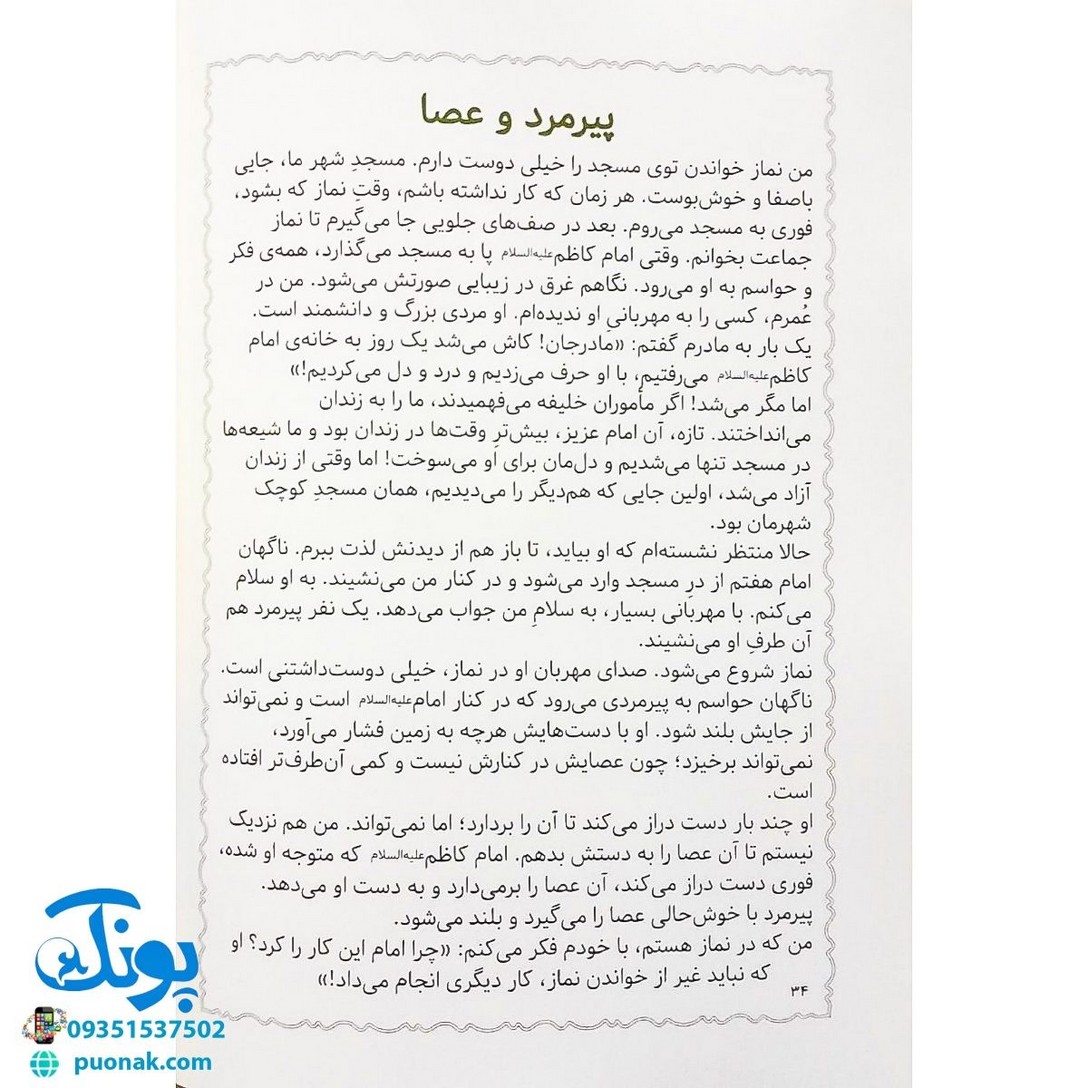 پیرمرد و عصا
من نماز خواندن توی مسجد را خیلی دوست دارم. مسجدِ شهر ما، جایی
باصفا و خوش‌بوست. هر زمان که کار نداشته باشم، وقتِ نماز که بشود،
فوری به مسجد می‌روم. بعد در صف‌های جلویی جا می‌گیرم تا نماز
جماعت بخوانم. وقتی امام کاظم علیه‌السلام پا به مسجد می‌گذارد، همه‌ی فکر
و حواسم به او می‌رود. نگاهم غرق در زیبایی صورتش می‌شود. من در
عُمرم، کسی را به مهربانیِ او ندیده‌ام. او مردی بزرگ و دانشمند است.
یک بار به مادرم گفتم: «مادرجان! کاش می‌شد یک روز به خانه‌ی امام
کاظم علیه‌السلام می‌رفتیم، با او حرف می‌زدیم و درد و دل می‌کردیم!»
اما مگر می‌شد! اگر مأموران خلیفه می‌فهمیدند، ما را به زندان
می‌انداختند. تازه، آن امام عزیز، بیش‌ترِ وقت‌ها در زندان بود و ما شیعه‌ها
در مسجد تنها می‌شدیم و دل‌مان برای او می‌سوخت! اما وقتی از زندان
آزاد می‌شد، اولین جایی که هم‌دیگر را می‌دیدیم، همان مسجدِ کوچک
شهرمان بود.
حالا منتظر نشسته‌ام که او بیاید، تا باز هم از دیدنش لذت ببرم. ناگهان
امام هفتم از درِ مسجد وارد می‌شود و در کنار من می‌نشیند. به او سلام
می‌کنم. با مهربانی بسیار، به سلامِ من جواب می‌دهد. یک نفر پیرمرد هم
آن طرفِ او می‌نشیند.
نماز شروع می‌شود. صدای مهربان او در نماز، خیلی دوست‌داشتنی است.
ناگهان حواسم به پیرمردی می‌رود که در کنار امام علیه‌السلام است و نمی‌تواند
از جایش بلند شود. او با دست‌هایش هرچه به زمین فشار می‌آورد،
نمی‌تواند برخیزد؛ چون عصایش در کنارش نیست و کمی آن‌طرف‌تر افتاده
است.
او چند بار دست دراز می‌کند تا آن را بردارد؛ اما نمی‌تواند. من هم نزدیک
نیستم تا آن عصا را به دستش بدهم. امام کاظم علیه‌السلام که متوجه او شده،
فوری دست دراز می‌کند، آن عصا را برمی‌دارد و به دست او می‌دهد.
پیرمرد با خوش‌حالی عصا را می‌گیرد و بلند می‌شود.
من که در نماز هستم، با خودم فکر می‌کنم: «چرا امام این کار را کرد؟ او
که نباید غیر از خواندن نماز، کار دیگری انجام می‌داد!»
۳۴
پونک
09351537502
puonak.com